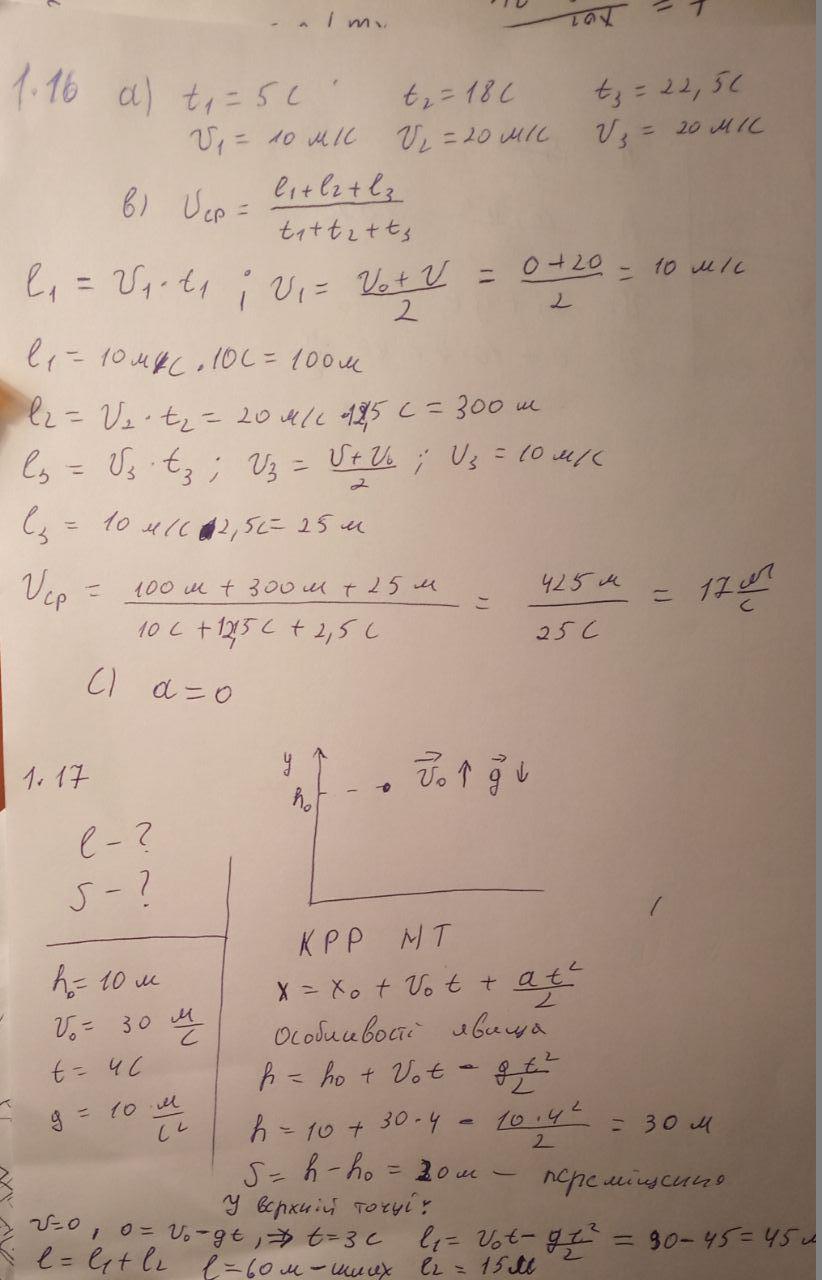 1.16 а) t₁ = 5 с t₂ = 18 с t₃ = 22,5 с
v₁ = 10 м/с v₂ = 20 м/с v₃ = 20 м/с
в) vср = (l₁ + l₂ + l₃) / (t₁ + t₂ + t₃)
l₁ = v₁ · t₁ ; v₁ = (v₀ + v) / 2 = (0 + 20) / 2 = 10 м/с
l₁ = 10 м/с · 10 с = 100 м
l₂ = v₂ · t₂ = 20 м/с · 12,5 с = 300 м
l₃ = v₃ · t₃ ; v₃ = (v + v₀) / 2 ; v₃ = 10 м/с
l₃ = 10 м/с · 2,5 с = 25 м
vср = (100 м + 300 м + 25 м) / (10 с + 12,5 с + 2,5 с) = 425 м / 25 с = 17 м/с
с) a = 0
1.17
y
h₀ v⃗₀ ↑ g⃗ ↓
l - ?
S - ?
h₀ = 10 м
v₀ = 30 м/с
t = 4 с
g = 10 м/с²
КРР МТ
x = x₀ + v₀t + at²/2
Особливості явища
h = h₀ + v₀t - gt²/2
h = 10 + 30·4 - 10·4²/2 = 30 м
S = h - h₀ = 20 м - переміщення
У верхній точці:
v=0, 0 = v₀ - gt, ⇒ t = 3 с l₁ = v₀t - gt²/2 = 90 - 45 = 45 м
l = l₁ + l₂ l = 60 м - шлях l₂ = 15 м